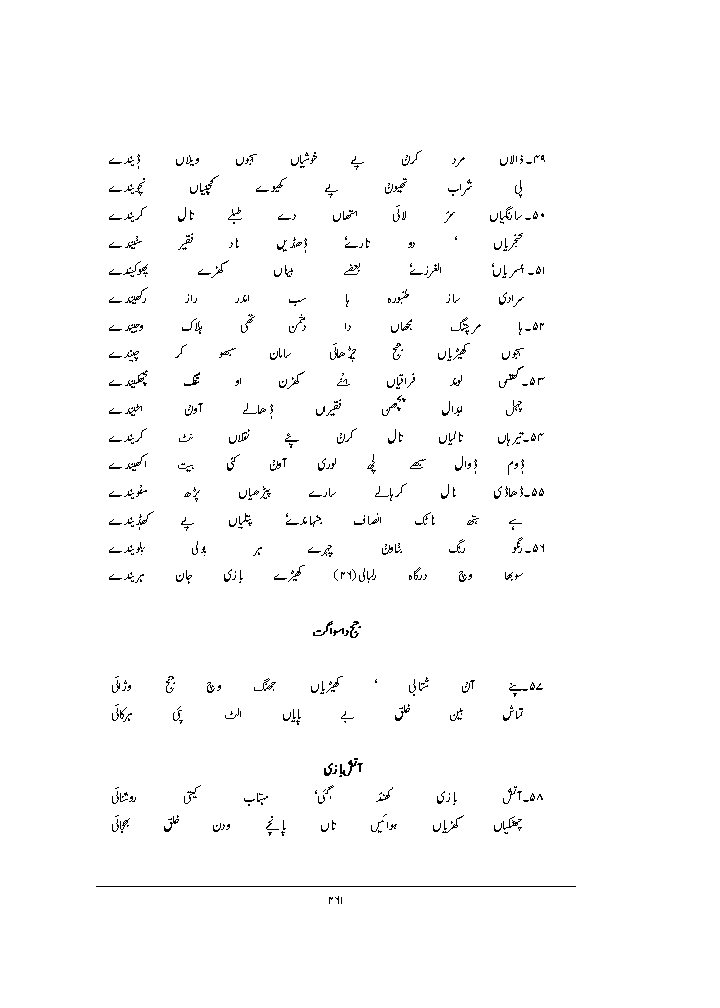 ۴۹۔ ڈالاں مرد کرن پے خوشیاں سبھوں ویلاں ڈیندے
پی شراب تھیون پے کھیوے کنچنیاں نچویندے
۵۰۔ سارنگیاں سر لائی ہتھاں دے طبلے نال کریندے
خنجریاں ، دو تارے ڈھڈیں ناد فقیر سنیندے
۵۱۔ بنسریاں الغرزے بعضے بیہاں کھڑے پھوکیندے
سرادی ساز طنبورہ ہا سب اندر راز رکھیندے
۵۲۔ ہا مرچنگ بجھاں دا دشمن تھی ہلاک وجیندے
سبھوں کھیڑیاں جنج چڑھائی سامان سبھو کر چیندے
۵۳۔ لوند فراقیاں ہنے کھڑن او
چہل ابدال پچھمی فقیراں ڈھالے آون
۵۴۔ تیریاں تالیاں نال کرن پئے نقلاں نٹ کریندے
ڈوم ڈوال سبھے لچھ لوری آون کئی بیت اکھیندے
۵۵۔ ڈھاڈی نال کربالے سارے پیڑھیاں پڑھ سنویندے
ہے ہتھ ناٹک انصاف جنہاندے پتلیاں پے کھڈیندے
۵۶۔ رنگو رنگ بناون چہرے ہر بولی بلویندے
سوبھا وچ درگاہ ربالی (۲۶) کھیڑے بازی جان ہریندے
جنج دا سواگت
۵۷۔ پنے آن شتابی ، کھیڑیاں جھنگ وچ جنج وڑائی
تماش بین خلق بے پایاں الٹ پئی ہرکائی
آتش بازی
۵۸۔ آتش بازی کھنڈ گئی، مہتاب کیتی روشنائی
چھٹکیاں کھڑیاں ہوائیں تاں پانچے ودن خلق بھجائی
۳۶۱